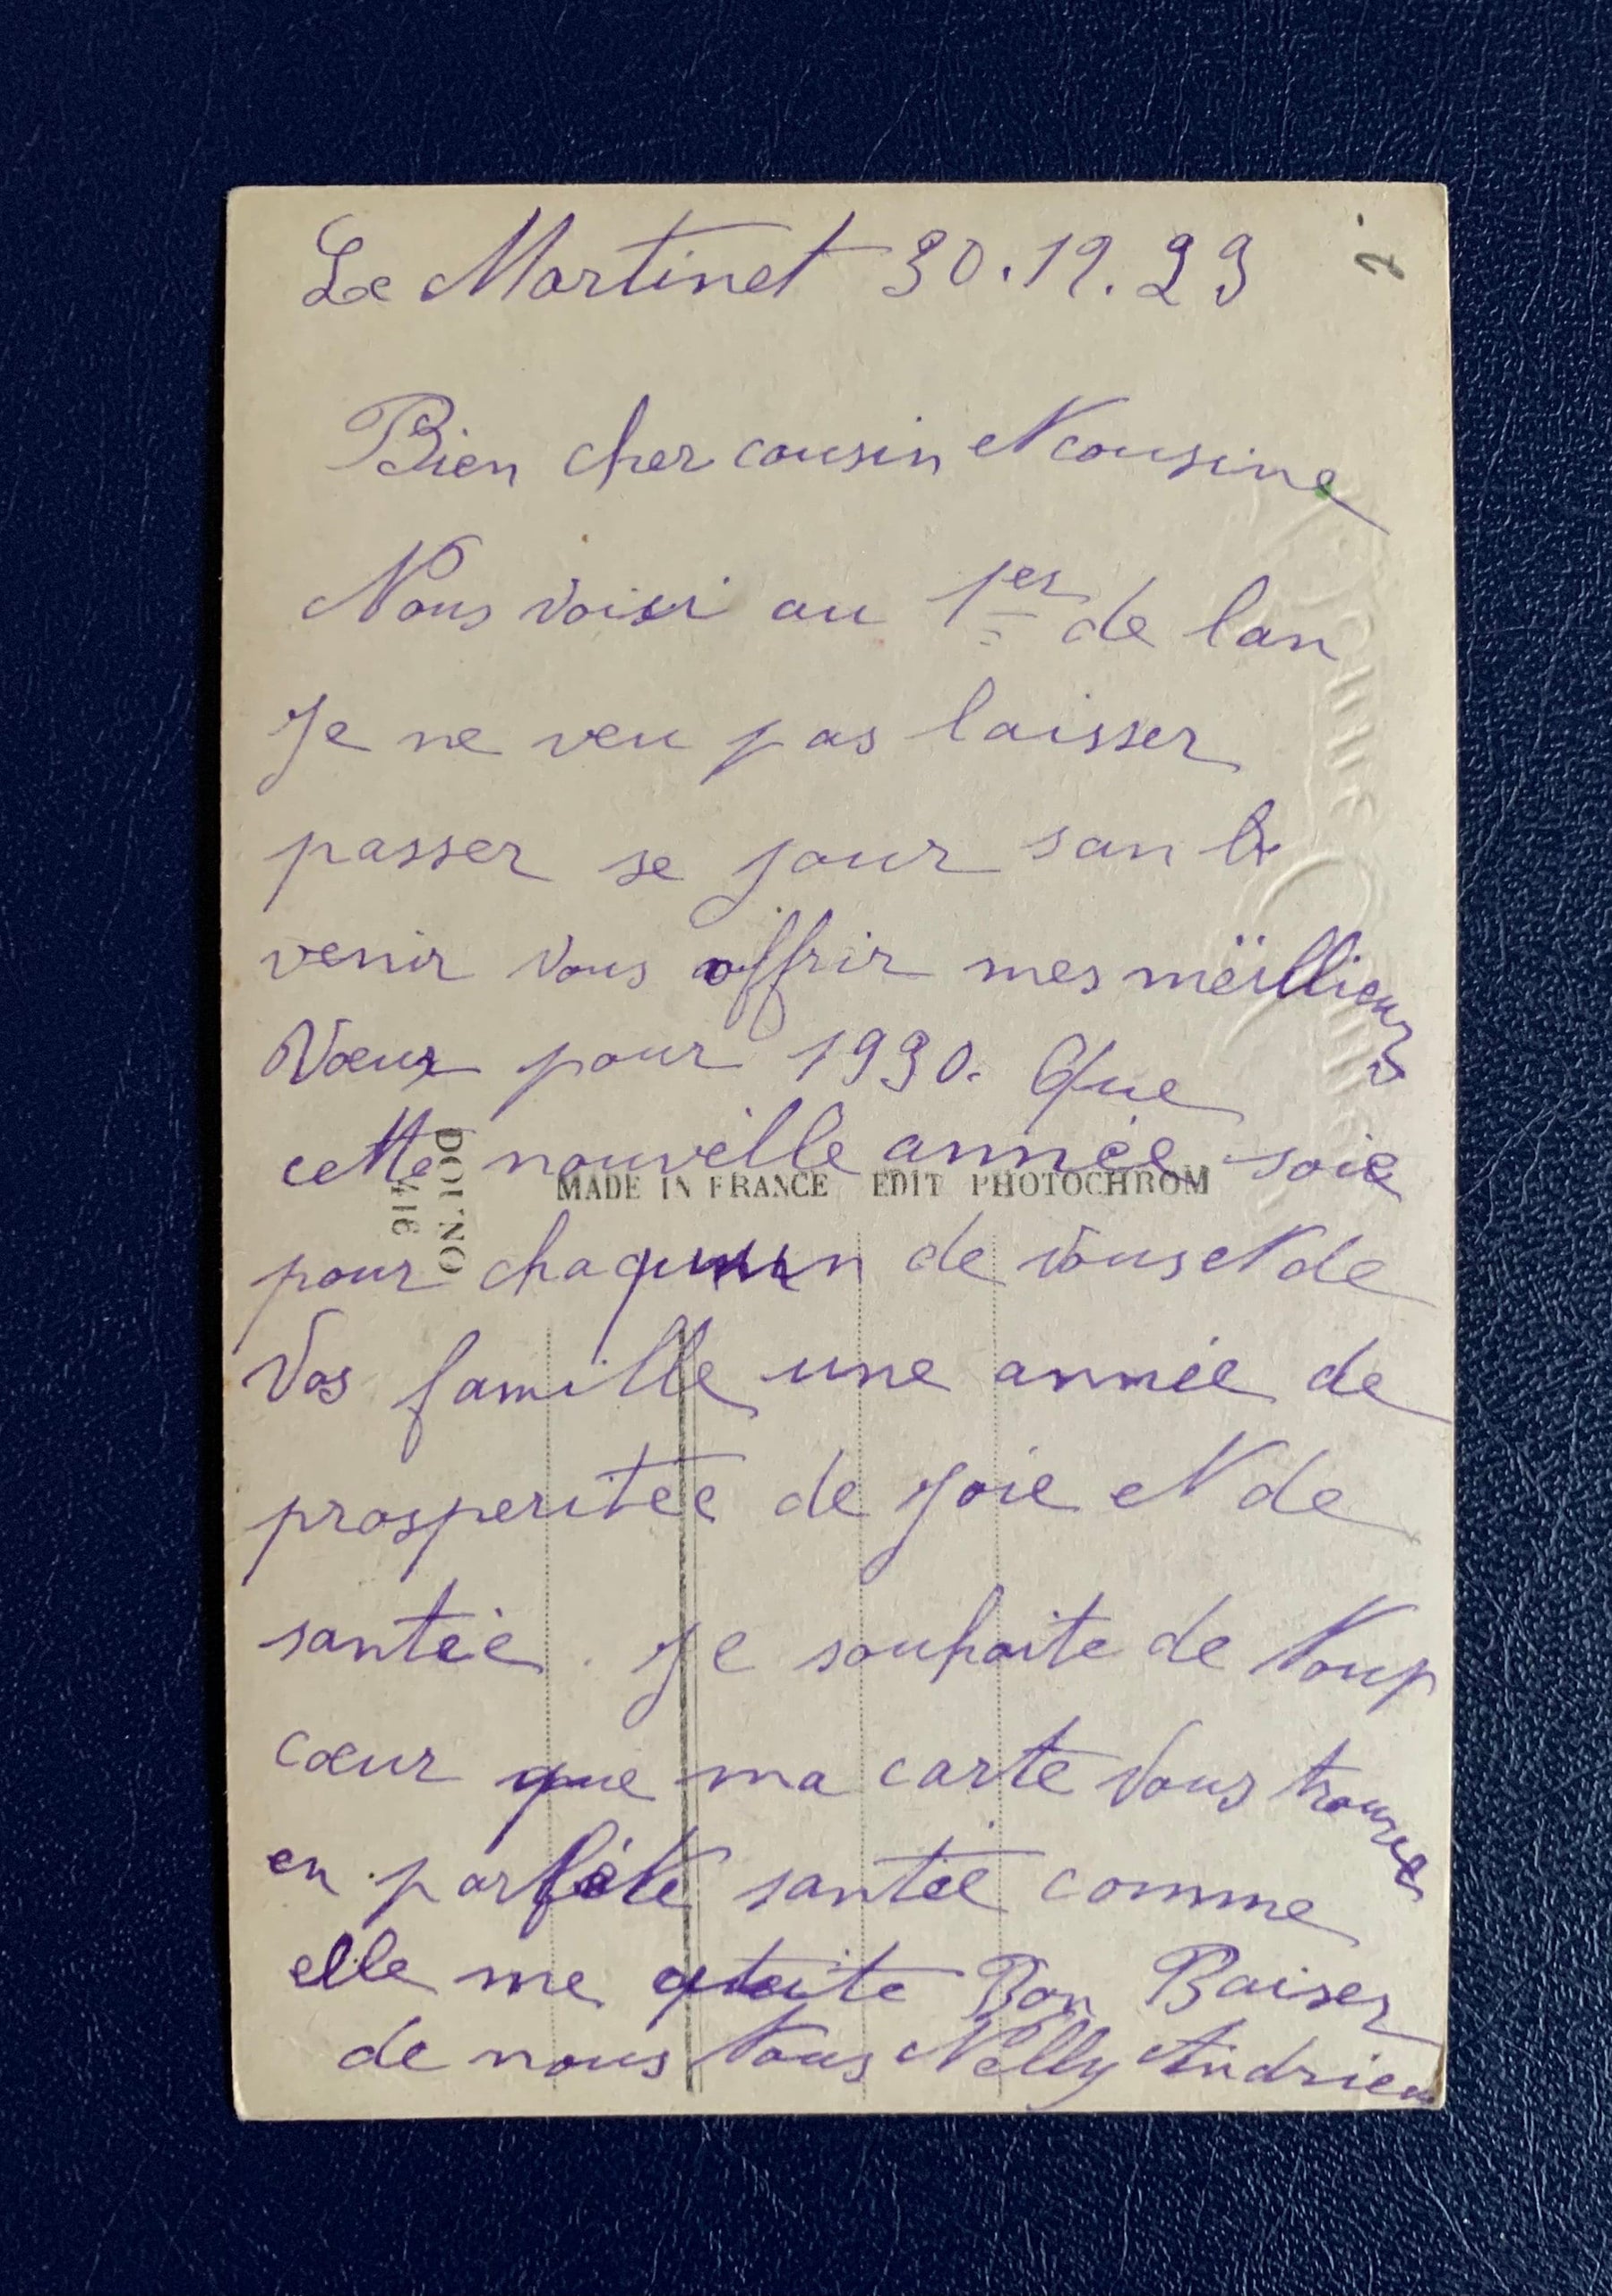 Le Martinet 30.12.29
Bien cher cousin et cousine
Nous voisi au 1er de lan
Je ne veu pas laisser
passer se jour san
venir vous offrir mes meillieur
Vœux pour 1930. Que
cette nouvelle année soie
MADE IN FRANCE EDIT PHOTOCHROM
pour chaqun de vous et de
Vos famille une année de
prosperitée de joie et de
santée. Je souhaite de tous
cœur que ma carte vous trouve
en parfète santée comme
elle me quite Bon Baiser
de nous tous Nelly Andrieu
416